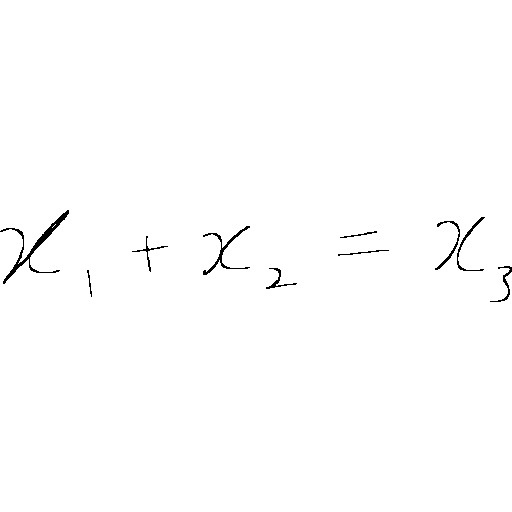 x₁ + x₂ = x₃